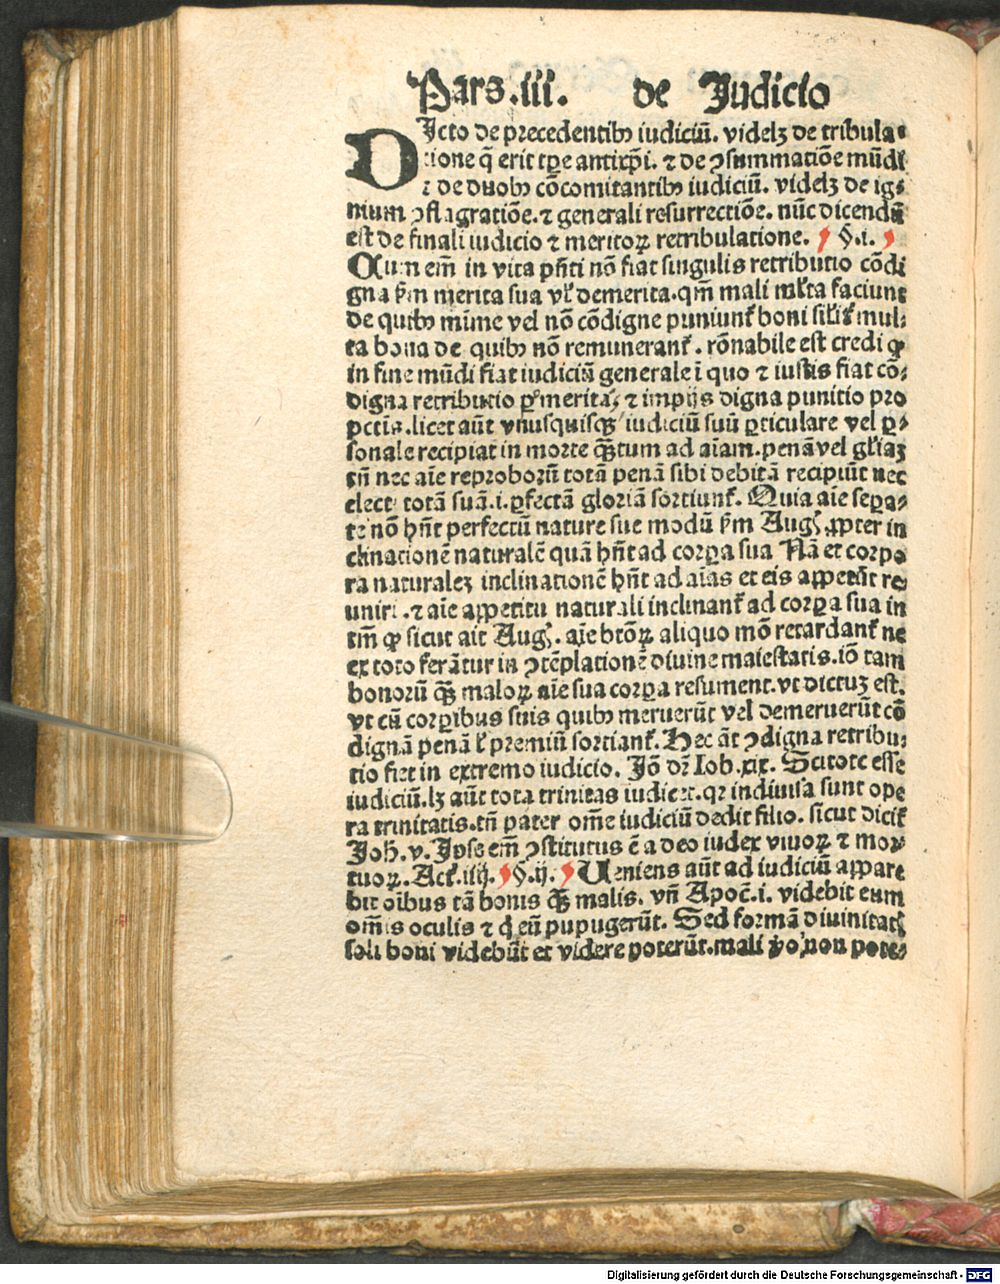 Pars.iii. de Judicio
DIcto de precedentibꝰ iudiciū. videlꝫ de tribula⸗
tione q̄ erit tꝑe antixp̄i. ⁊ de ꝯsummatiōe mūdi
⁊ de duobꝰ cōcomitantibꝰ iudiciū. videlꝫ de ig⸗
nium ꝯflagratiōe.⁊ generali resurrectiōe. nūc dicendū
est de finali iudicio ⁊ meritoꝝ retribulatione. §.i.
Quum em̄ in vita pn̄ti nō fiat singulis retributio cōdi
gna ẜm merita sua vl̓ demerita.qm̄ mali ml̓ta faciunt
de quibꝰ mīme vel nō cōdigne puniunt᷑ boni sil̓iť mul⸗
ta bona de quibꝰ nō remunerant᷑. rōnabile est credi ꝙ
in fine mūdi fiat iudiciū generale ī quo ⁊ iustis fiat cō⸗
digna retributio ꝓ meritis, ⁊ impijs digna punitio pro
pctīs.licet aūt vnusquisqꝫ iudiciū suū ꝑticulare vel ꝑ⸗
sonale recipiat in morte q̄ꝫtum ad aīam.penā vel gl̓iaꝫ
tn̄ nec aīe reproborū totā penā sibi debitā recipiūt nec
electi totā suā.i.ꝑfectā gloriā sortiunt᷑. Quia aīe sepa⸗
te nō hn̄t perfectū nature sue modū ẜm Augꝰ ꝓpter in
clinationē naturalē quā hn̄t ad corꝑa sua Nā et corpo
ra naturaleꝫ inclinationē hn̄t ad aīas et eis appetūt re
uniri .⁊ aīe appetitu naturali inclinant᷑ ad corꝑa sua in
tm̄ ꝙ sicut ait Augꝰ. aīe btōꝝ aliquo mō retardant᷑ ne
ex toto ferātur in ꝯtēplationē diuine maiestatis.iō tam
bonorū q̄ꝫ maloꝝ aīe sua corꝑa resument.vt dictuꝫ est.
vt cū corꝑibus suis quibꝰ meruerūt vel demeruerūt cō
dignā penā l̓ premiū sortiant᷑. Hec āt ꝯdigna retribu⸗
tio fiet in extremo iudicio. Jō dr̄ Iob.xix. Scitote esse
iudiciū.lꝫ aūt tota trinitas iudicet.qr indiuisa sunt ope
ra trinitatis.tn̄ pater om̄e iudiciū dedit filio. sicut dicit᷑
Joh̄.v. Ipse em̄ ꝯstitutus ē a deo iudex viuoꝝ ⁊ mor⸗
tuoꝝ. Act᷑.iiij. §.ij. Ueniens aūt ad iudiciū appare
bit oībus tā bonis q̄ꝫ malis. vn̄ Apoc̄.i. videbit eum
om̄is oculis ⁊ q̇ eū pupugerūt. Sed formā diuinitatꝭ
soli boni videbūt et videre poterūt.mali ꝟo non pote⸗
Digitalisierung gefördert durch die Deutsche Forschungsgemeinschaft - DFG